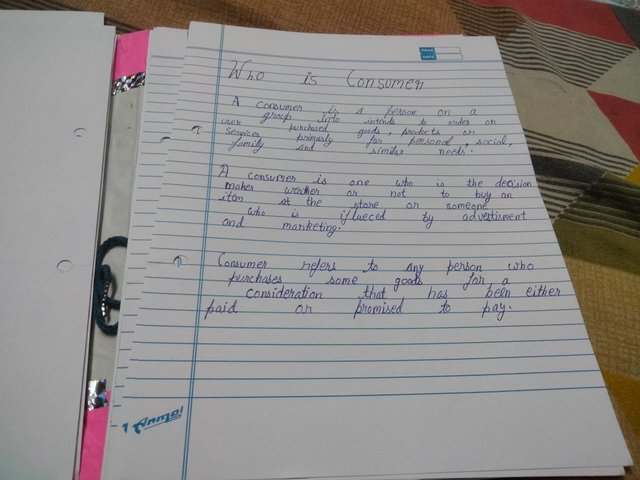 PAGE
DATE
Who is Consumer
A consumer is a person or a
group who intends to order or
user purchased goods, products or
services primarily for personal, social,
family and similar needs.
A consumer is one who is the decision
maker weather or not to buy an
item at the store or someone
who is iflueced by advertisment
and marketing.
Consumer refers to any person who
purchases some goods for a
consideration that has been either
paid or promised to pay.
Anmol